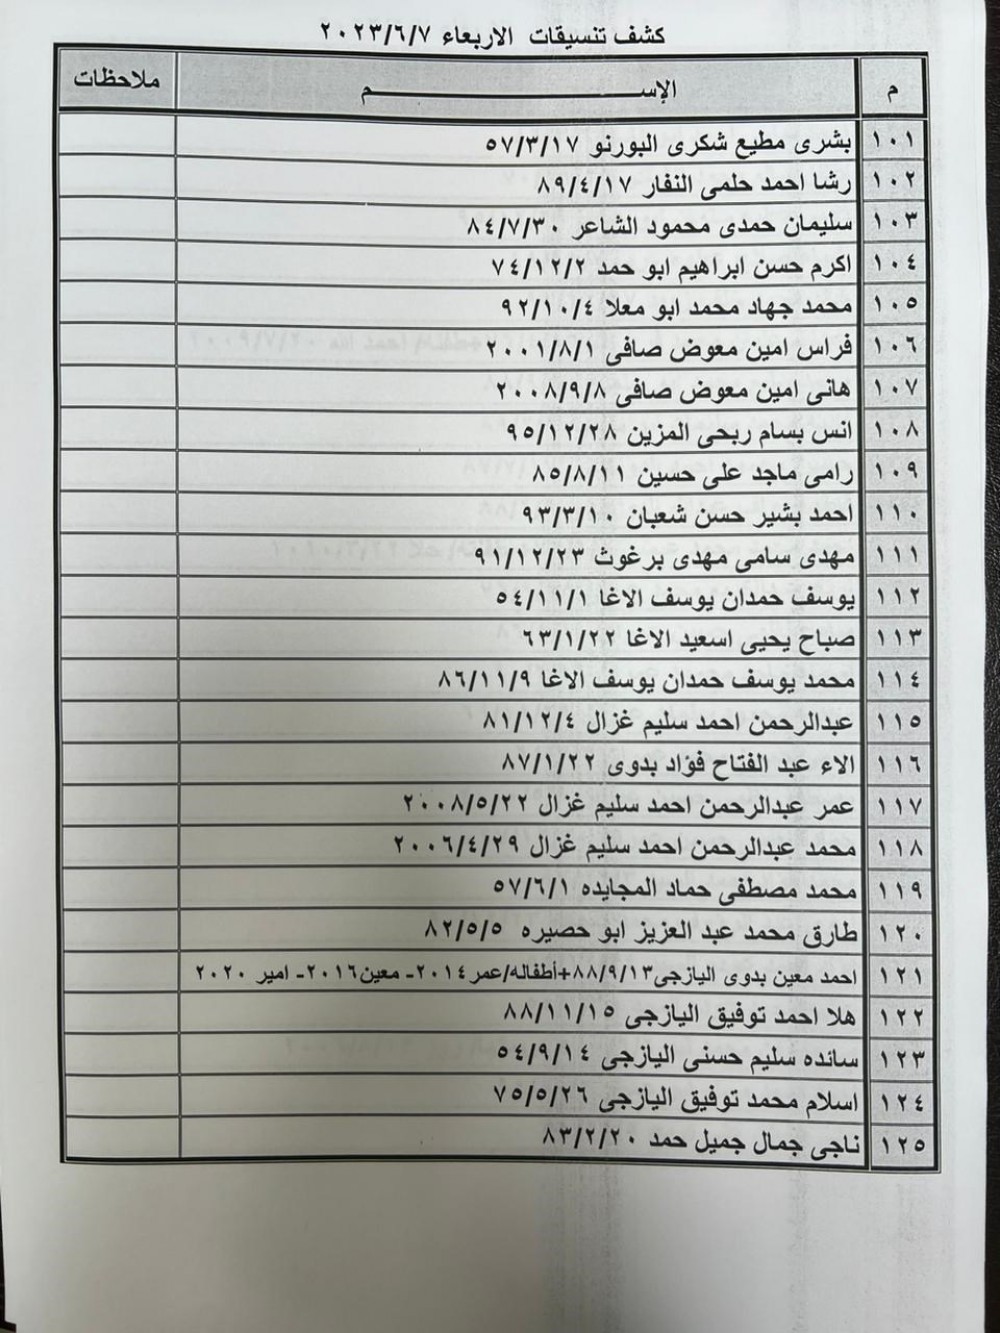 كشف تنسيقات الاربعاء ٢٠٢٣/٦/٧
م الإســـــم ملاحظات
١٠١ بشرى مطيع شكرى البورنو ٥٧/٣/١٧
١٠٢ رشا احمد حلمى النفار ٨٩/٤/١٧
١٠٣ سليمان حمدى محمود الشاعر ٨٤/٧/٣٠
١٠٤ اكرم حسن ابراهيم ابو حمد ٧٤/١٢/٢
١٠٥ محمد جهاد محمد ابو معلا ٩٢/١٠/٤
١٠٦ فراس امين معوض صافى ٢٠٠١/٨/١
١٠٧ هانى امين معوض صافى ٢٠٠٨/٩/٨
١٠٨ انس بسام ربحى المزين ٩٥/١٢/٢٨
١٠٩ رامى ماجد على حسين ٨٥/٨/١١
١١٠ احمد بشير حسن شعبان ٩٣/٣/١٠
١١١ مهدى سامى مهدى برغوث ٩١/١٢/٢٣
١١٢ يوسف حمدان يوسف الاغا ٥٤/١١/١
١١٣ صباح يحيى اسعيد الاغا ٦٣/١/٢٢
١١٤ محمد يوسف حمدان يوسف الاغا ٨٦/١١/٩
١١٥ عبدالرحمن احمد سليم غزال ٨١/١٢/٤
١١٦ الاء عبد الفتاح فؤاد بدوى ٨٧/١/٢٢
١١٧ عمر عبدالرحمن احمد سليم غزال ٢٠٠٨/٥/٢٢
١١٨ محمد عبدالرحمن احمد سليم غزال ٢٠٠٦/٤/٢٩
١١٩ محمد مصطفى حماد المجايده ٥٧/٦/١
١٢٠ طارق محمد عبد العزيز ابو حصيره ٨٢/٥/٥
١٢١ احمد معين بدوى اليازجى٨٨/٩/١٣+أطفاله/عمر٢٠١٤- معين٢٠١٦- امير ٢٠٢٠
١٢٢ هلا احمد توفيق اليازجى ٨٨/١١/١٥
١٢٣ سانده سليم حسنى اليازجى ٥٤/٩/١٤
١٢٤ اسلام محمد توفيق اليازجى ٧٥/٥/٢٦
١٢٥ ناجى جمال جميل حمد ٨٣/٢/٢٠